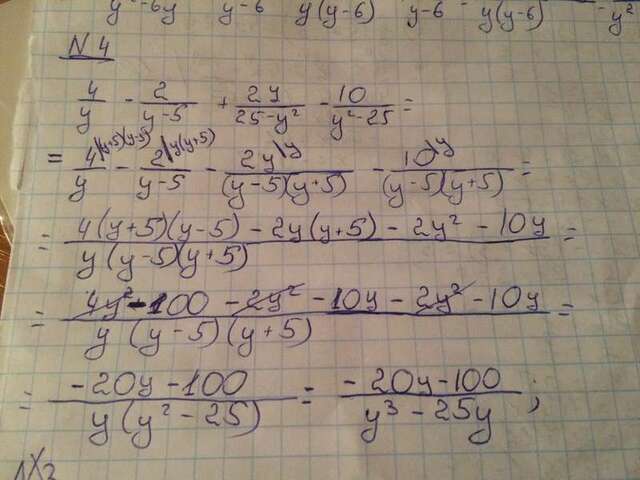 y²-6y y-6 y(y-6) y-6 = y(y-6) - y²
N4
4/y - 2/(y-5) + 2y/(25-y²) - 10/(y²-25) =
= 4\(y+5)(y-5)/y - 2\y(y+5)/(y-5) - 2y\y/((y-5)(y+5)) - 10\y/((y-5)(y+5)) =
= (4(y+5)(y-5) - 2y(y+5) - 2y² - 10y)/(y(y-5)(y+5)) =
= (4y² - 100 - 2y² - 10y - 2y² - 10y)/(y(y-5)(y+5)) =
= (-20y-100)/(y(y²-25)) = (-20y-100)/(y³-25y);